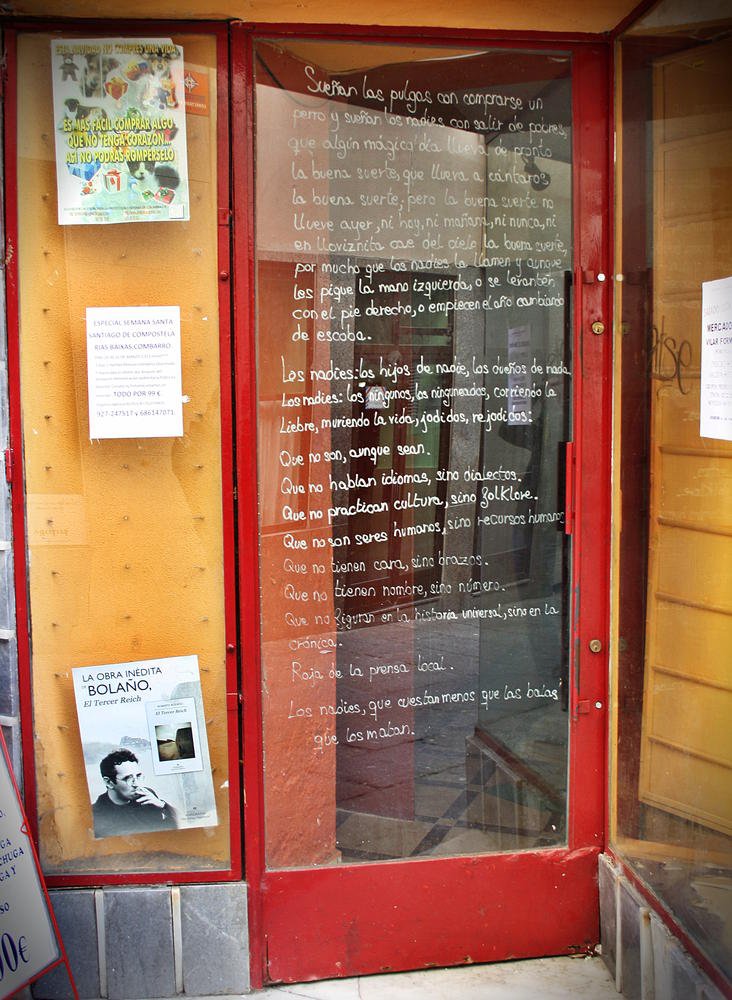 ESTA NAVIDAD NO COMPRES UNA VIDA
ES MAS FACIL COMPRAR ALGO
QUE NO TENGA CORAZON...
ASI NO PODRAS ROMPERSELO
ESPECIAL SEMANA SANTA
SANTIAGO DE COMPOSTELA
RIAS BAIXAS, COMBARRO
TODO POR 99 €.
927-247517 y 686147071
LA OBRA INÉDITA
DE BOLAÑO,
El Tercer Reich
Sueñan las pulgas con comprarse un
perro y sueñan los nadies con salir de pobres,
que algún mágico día llueva de pronto
la buena suerte, que llueva a cántaros
la buena suerte; pero la buena suerte no
llueve ayer, ni hoy, ni mañana, ni nunca, ni
en lloviznita cae del cielo la buena suerte,
por mucho que los nadies la llamen y aunque
les pique la mano izquierda, o se levanten
con el pie derecho, o empiecen el año cambiando
de escoba.
Los nadies: los hijos de nadie, los dueños de nada.
Los nadies: los ningunos, los ninguneados, corriendo la
Liebre, muriendo la vida, jodidos, rejodidos:
Que no son, aunque sean.
Que no hablan idiomas, sino dialectos.
Que no practican cultura, sino folklore.
Que no son seres humanos, sino recursos humanos
Que no tienen cara, sino brazos.
Que no tienen nombre, sino número.
Que no figuran en la historia universal, sino en la
crónica.
Roja de la prensa local.
Los nadies, que cuestan menos que las balas
que los matan.
MERCADO
VILAR FORM